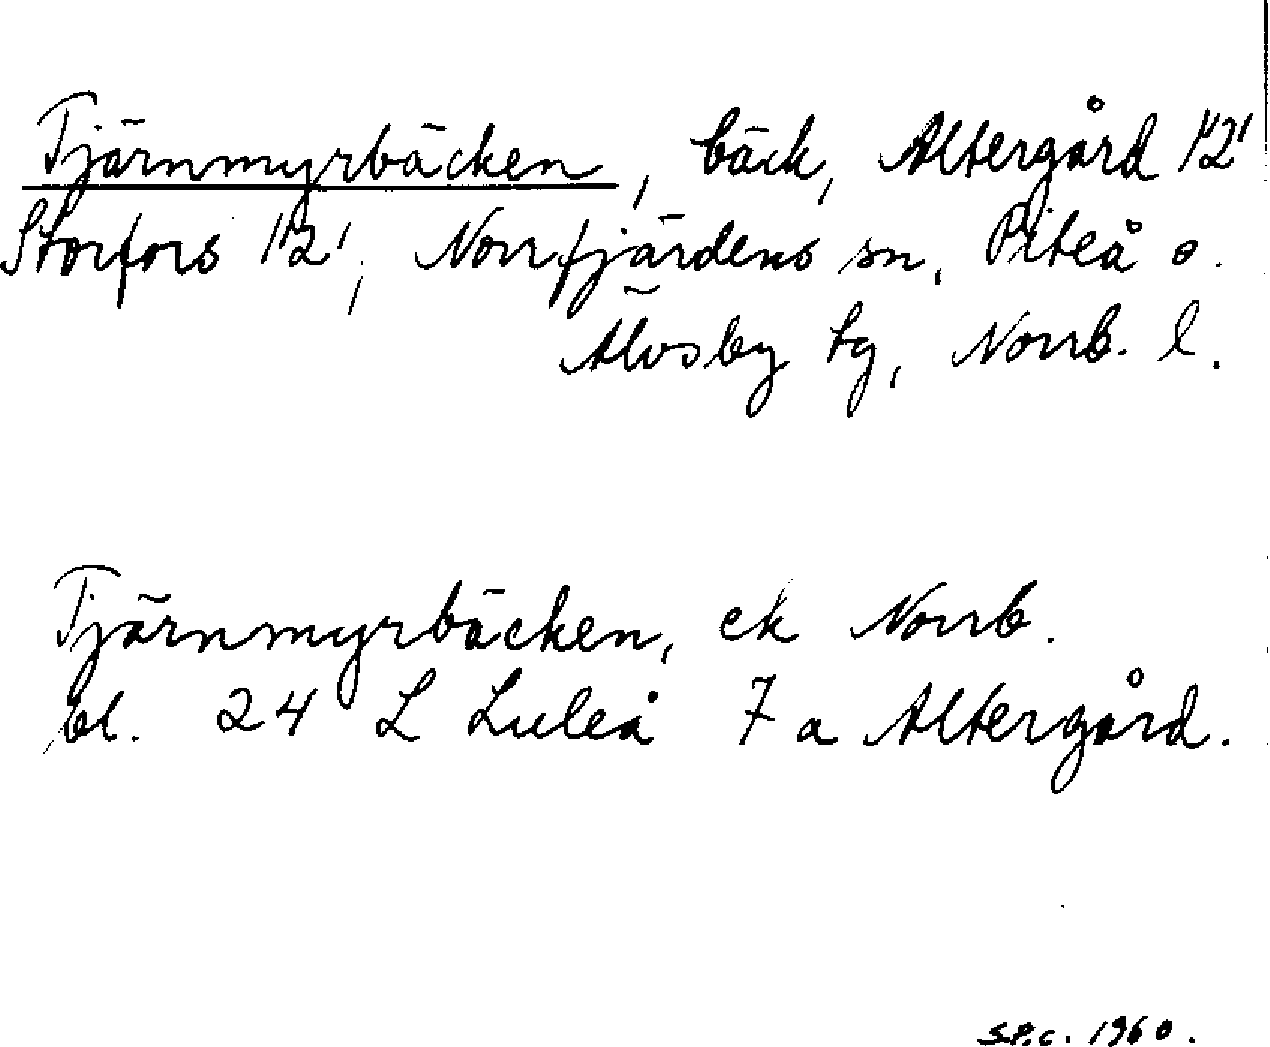 Tjärnmyrbäcken, bäck, Altergård 1¹2¹
Storfors 1¹2¹, Norrfjärdens sn, Piteå o.
Älvsby tg, Norrb. l.
Tjärnmyrbäcken, ek Norrb.
bl. 24 L Luleå 7 a Altergård.
S.P.c. 1960.